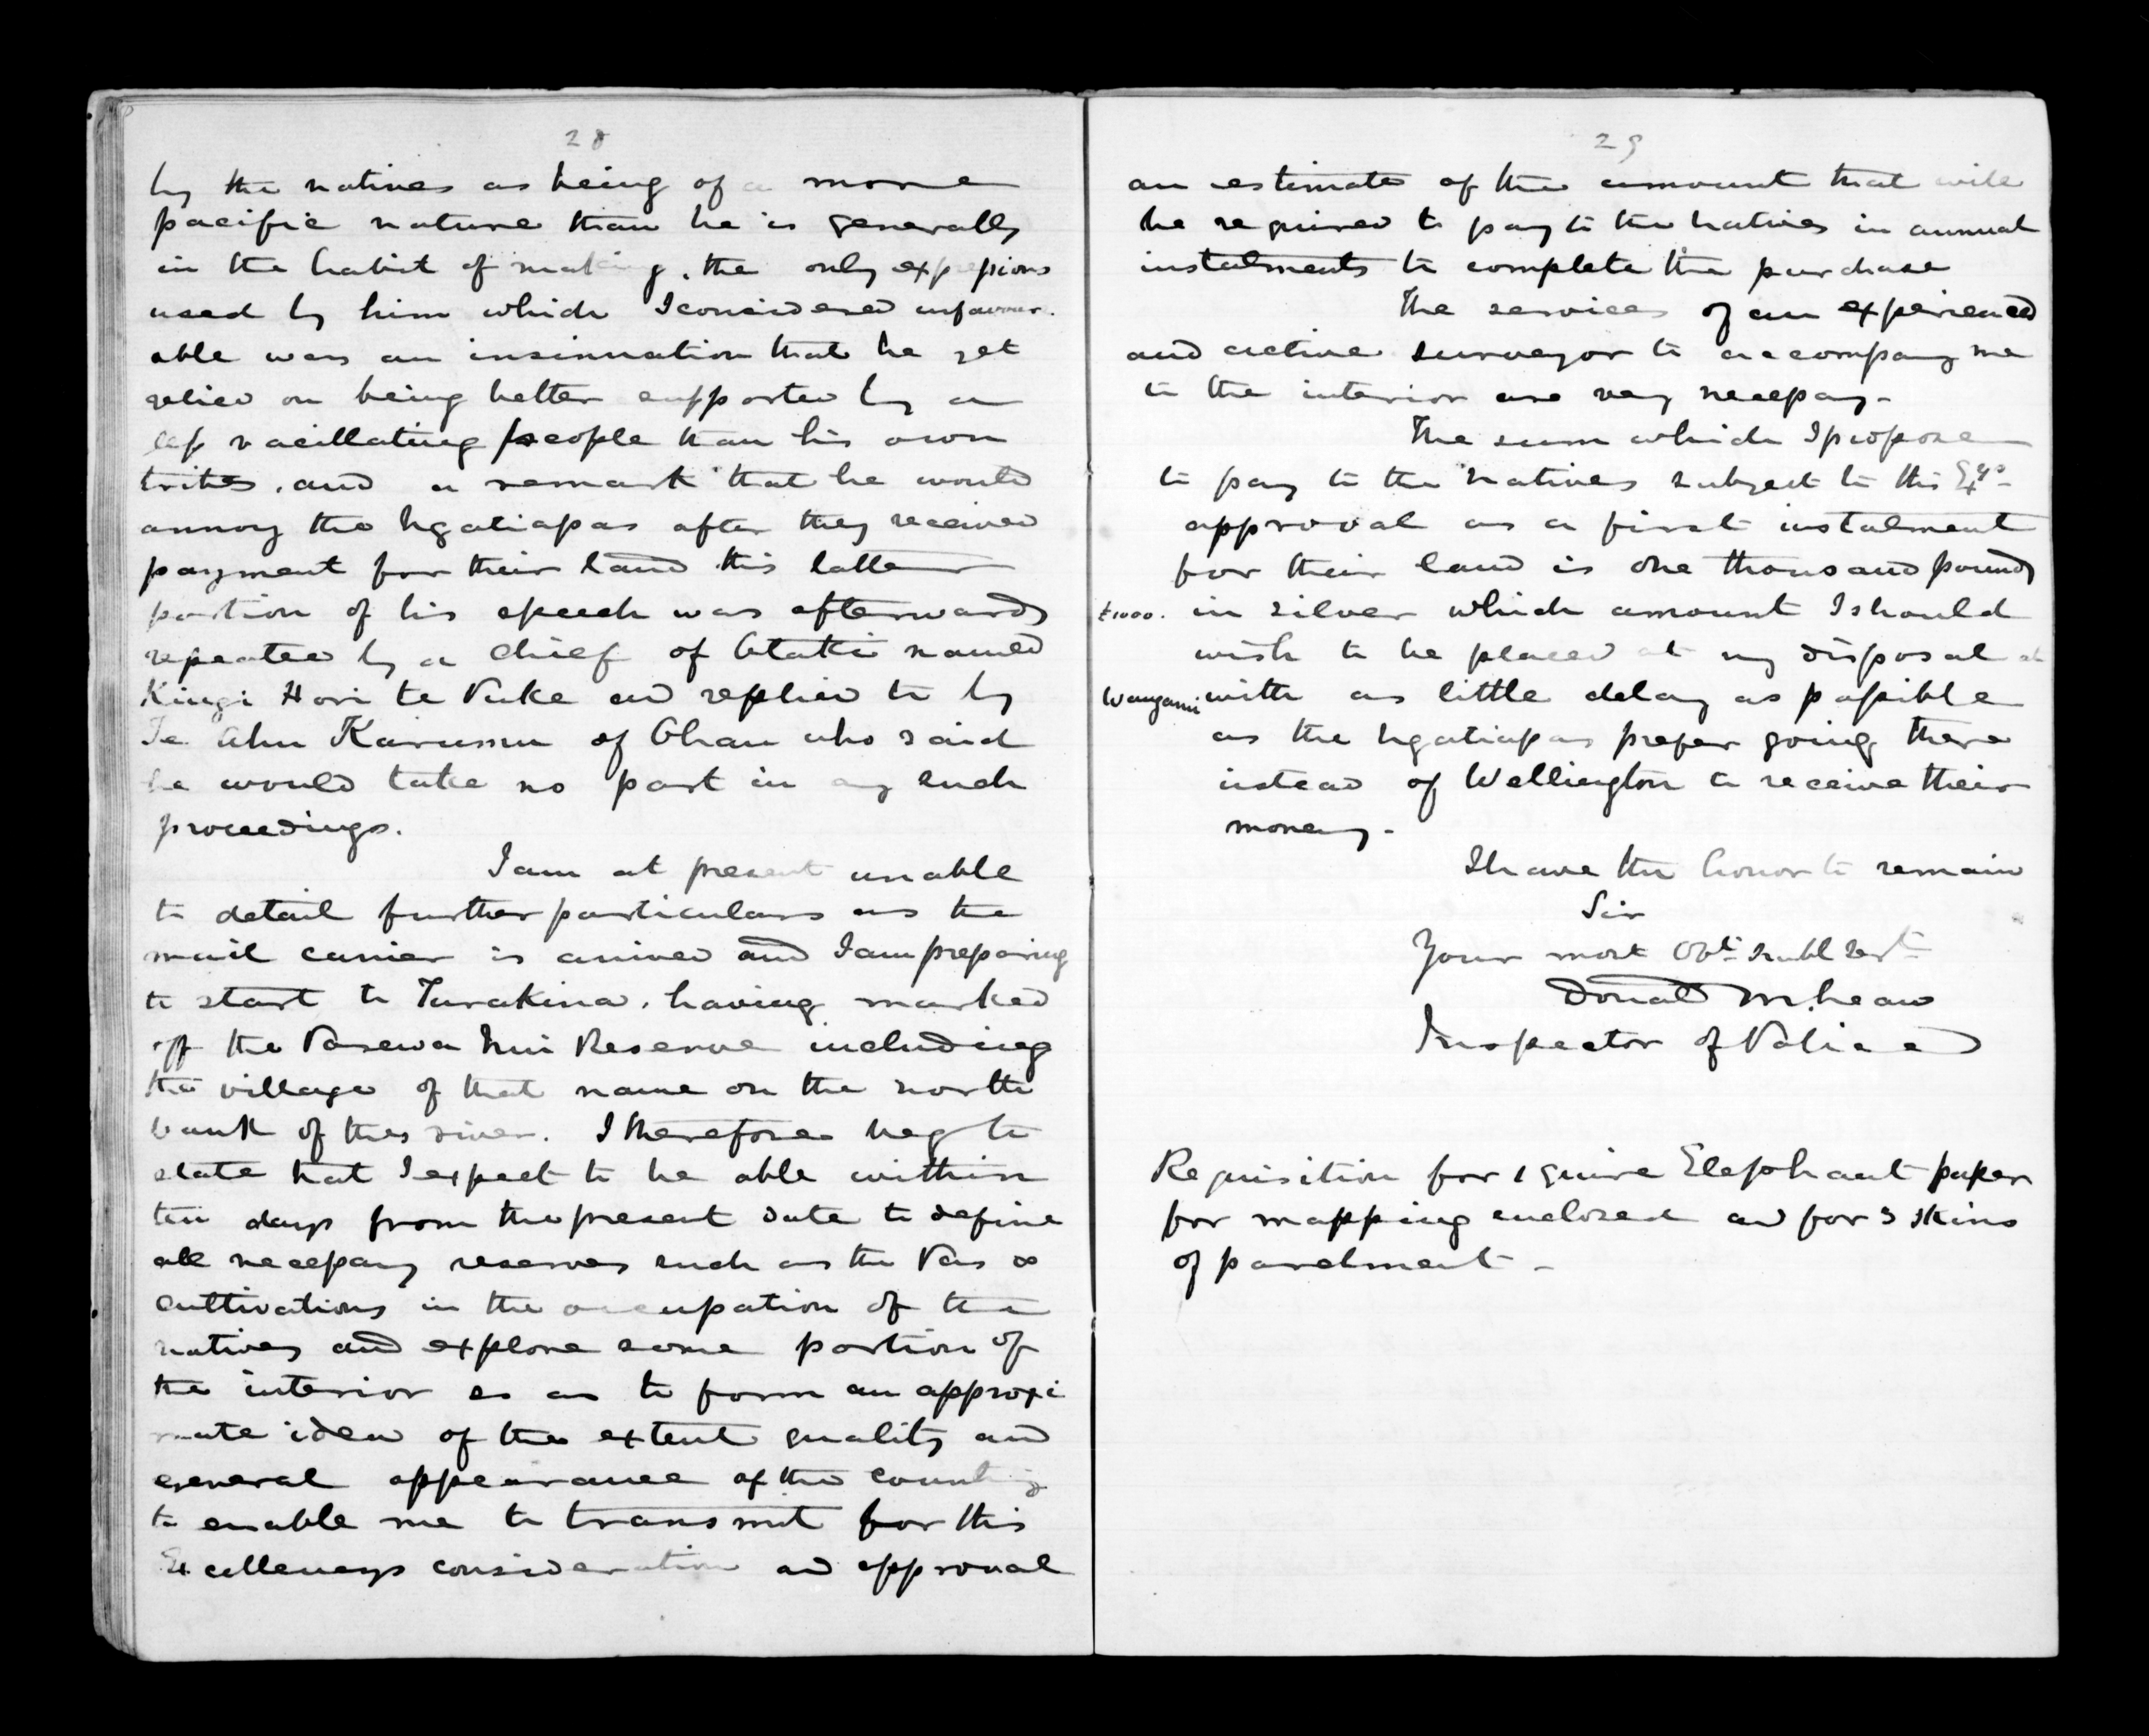 28
by the natives as being of a more
pacific nature than he is generally
in the habit of making, the only expressions
used by him which I considered unfavour-
able was an insinuation that he yet
relied on being better supported by a
less vacillating people than his own
tribes, and a remark that he would
annoy the Ngatiapas after they received
payment for their land this latter
portion of his speech was afterwards
repeated by a chief of Otaki named
Kingi Hori te Puke and replied to by
Te Ahu Karamu of Ohau who said
he would take no part in any such
proceedings.
I am at present unable
to detail further particulars as the
mail carrier is arrived and I am preparing
to start to Turakina, having marked
off the Parewa Nui Reserve including
the village of that name on the north
bank of the river. I therefore beg to
state that I expect to be able within
ten days from the present date to define
all necessary reserves such as the Pas &
cultivations in the occupation of the
natives and explore some portion of
the interior so as to form an approxi
mate idea of the extent quality and
general appearance of the country
to enable me to transmit for His
Excellencys consideration and approval
29
an estimate of the amount that will
be required to pay to the natives in annual
instalments to complete the purchase
The services of an experienced
and active surveyor to accompany me
to the interior are very necessary-
The sum which I propose
to pay to the natives subject to His Exys-
approval as a first instalment
for their land is one thousand pounds
£1000. in silver which amount I should
wish to be placed at my disposal at
Wanganui with as little delay as possible
as the Ngatiapas prefer going there
instead of Wellington to receive their
money-
I have the honor to remain
Sir
Your most Obt humbl Sert
Donald McLean
Inspector of Police
Requisition for 1 quire Elephant paper
for mapping enclosed and for 3 skins
of parchment-